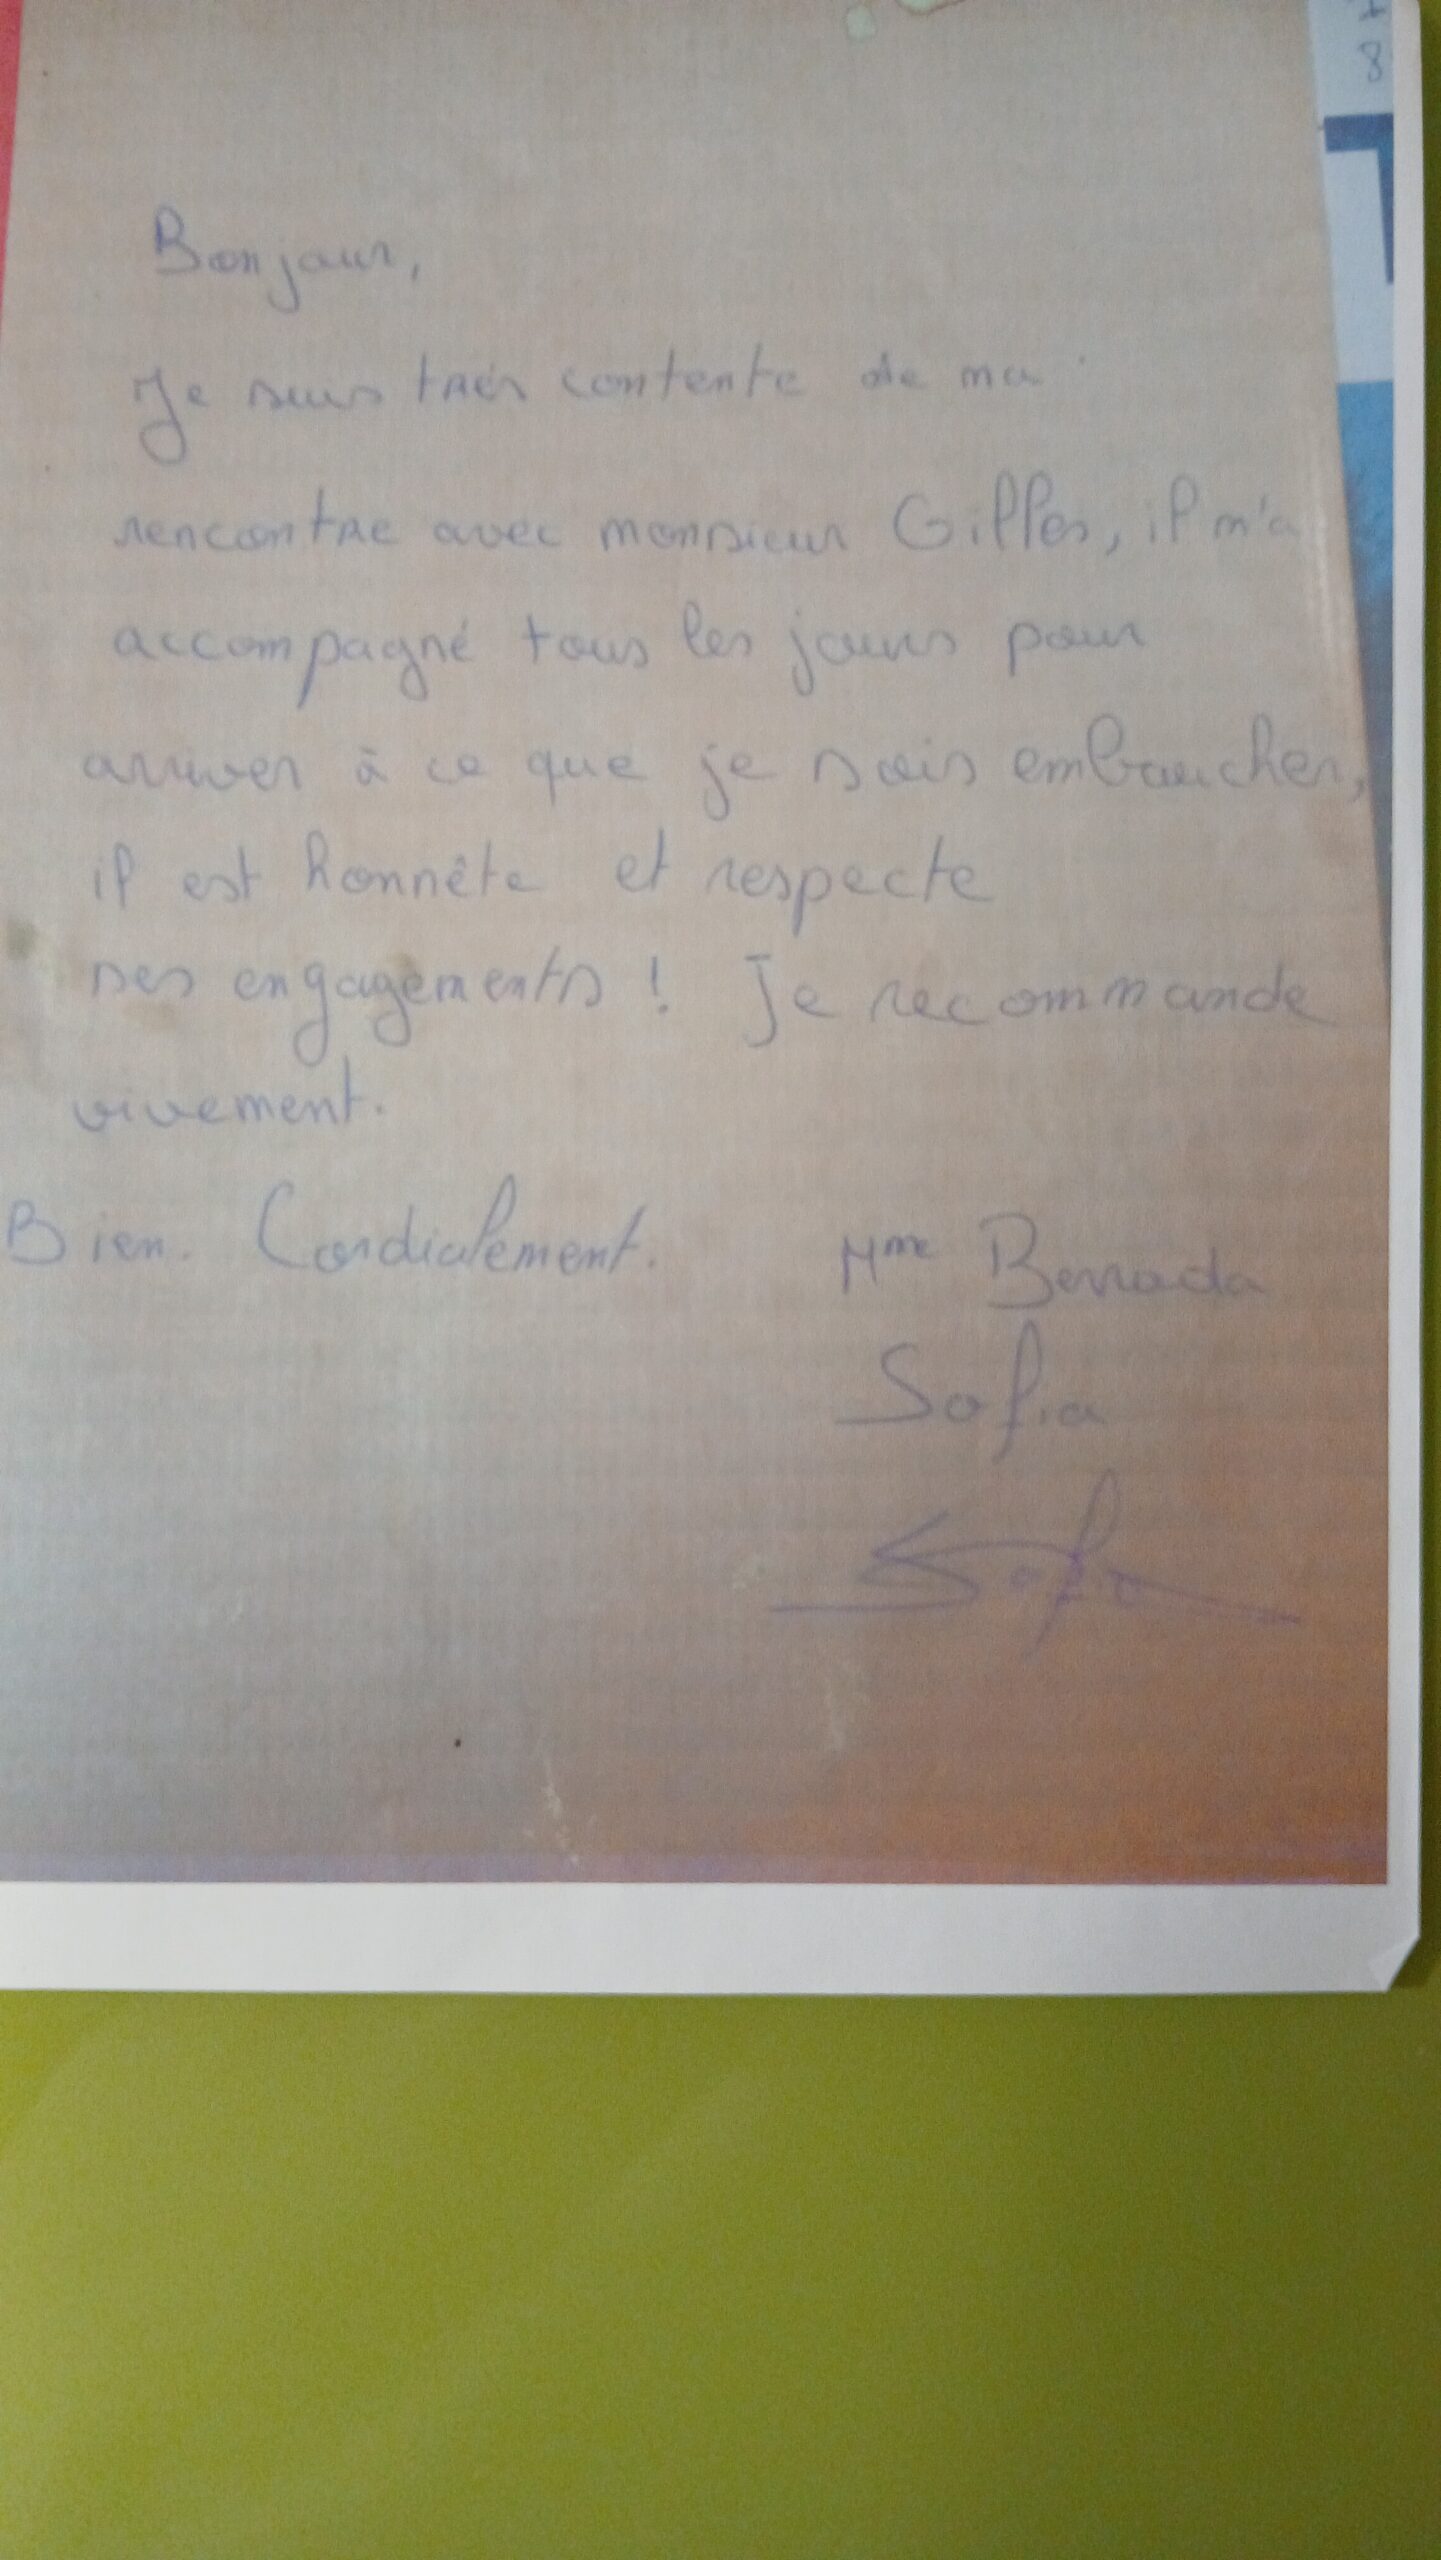 Bonjour,
Je suis très contente de ma
rencontre avec monsieur Gilles, il m'a
accompagné tous les jours pour
arriver à ce que je sois embaucher,
il est honnête et respecte
ses engagements ! Je recommande
vivement.
Bien Cordialement. Mme
Sofia
Sofia
8